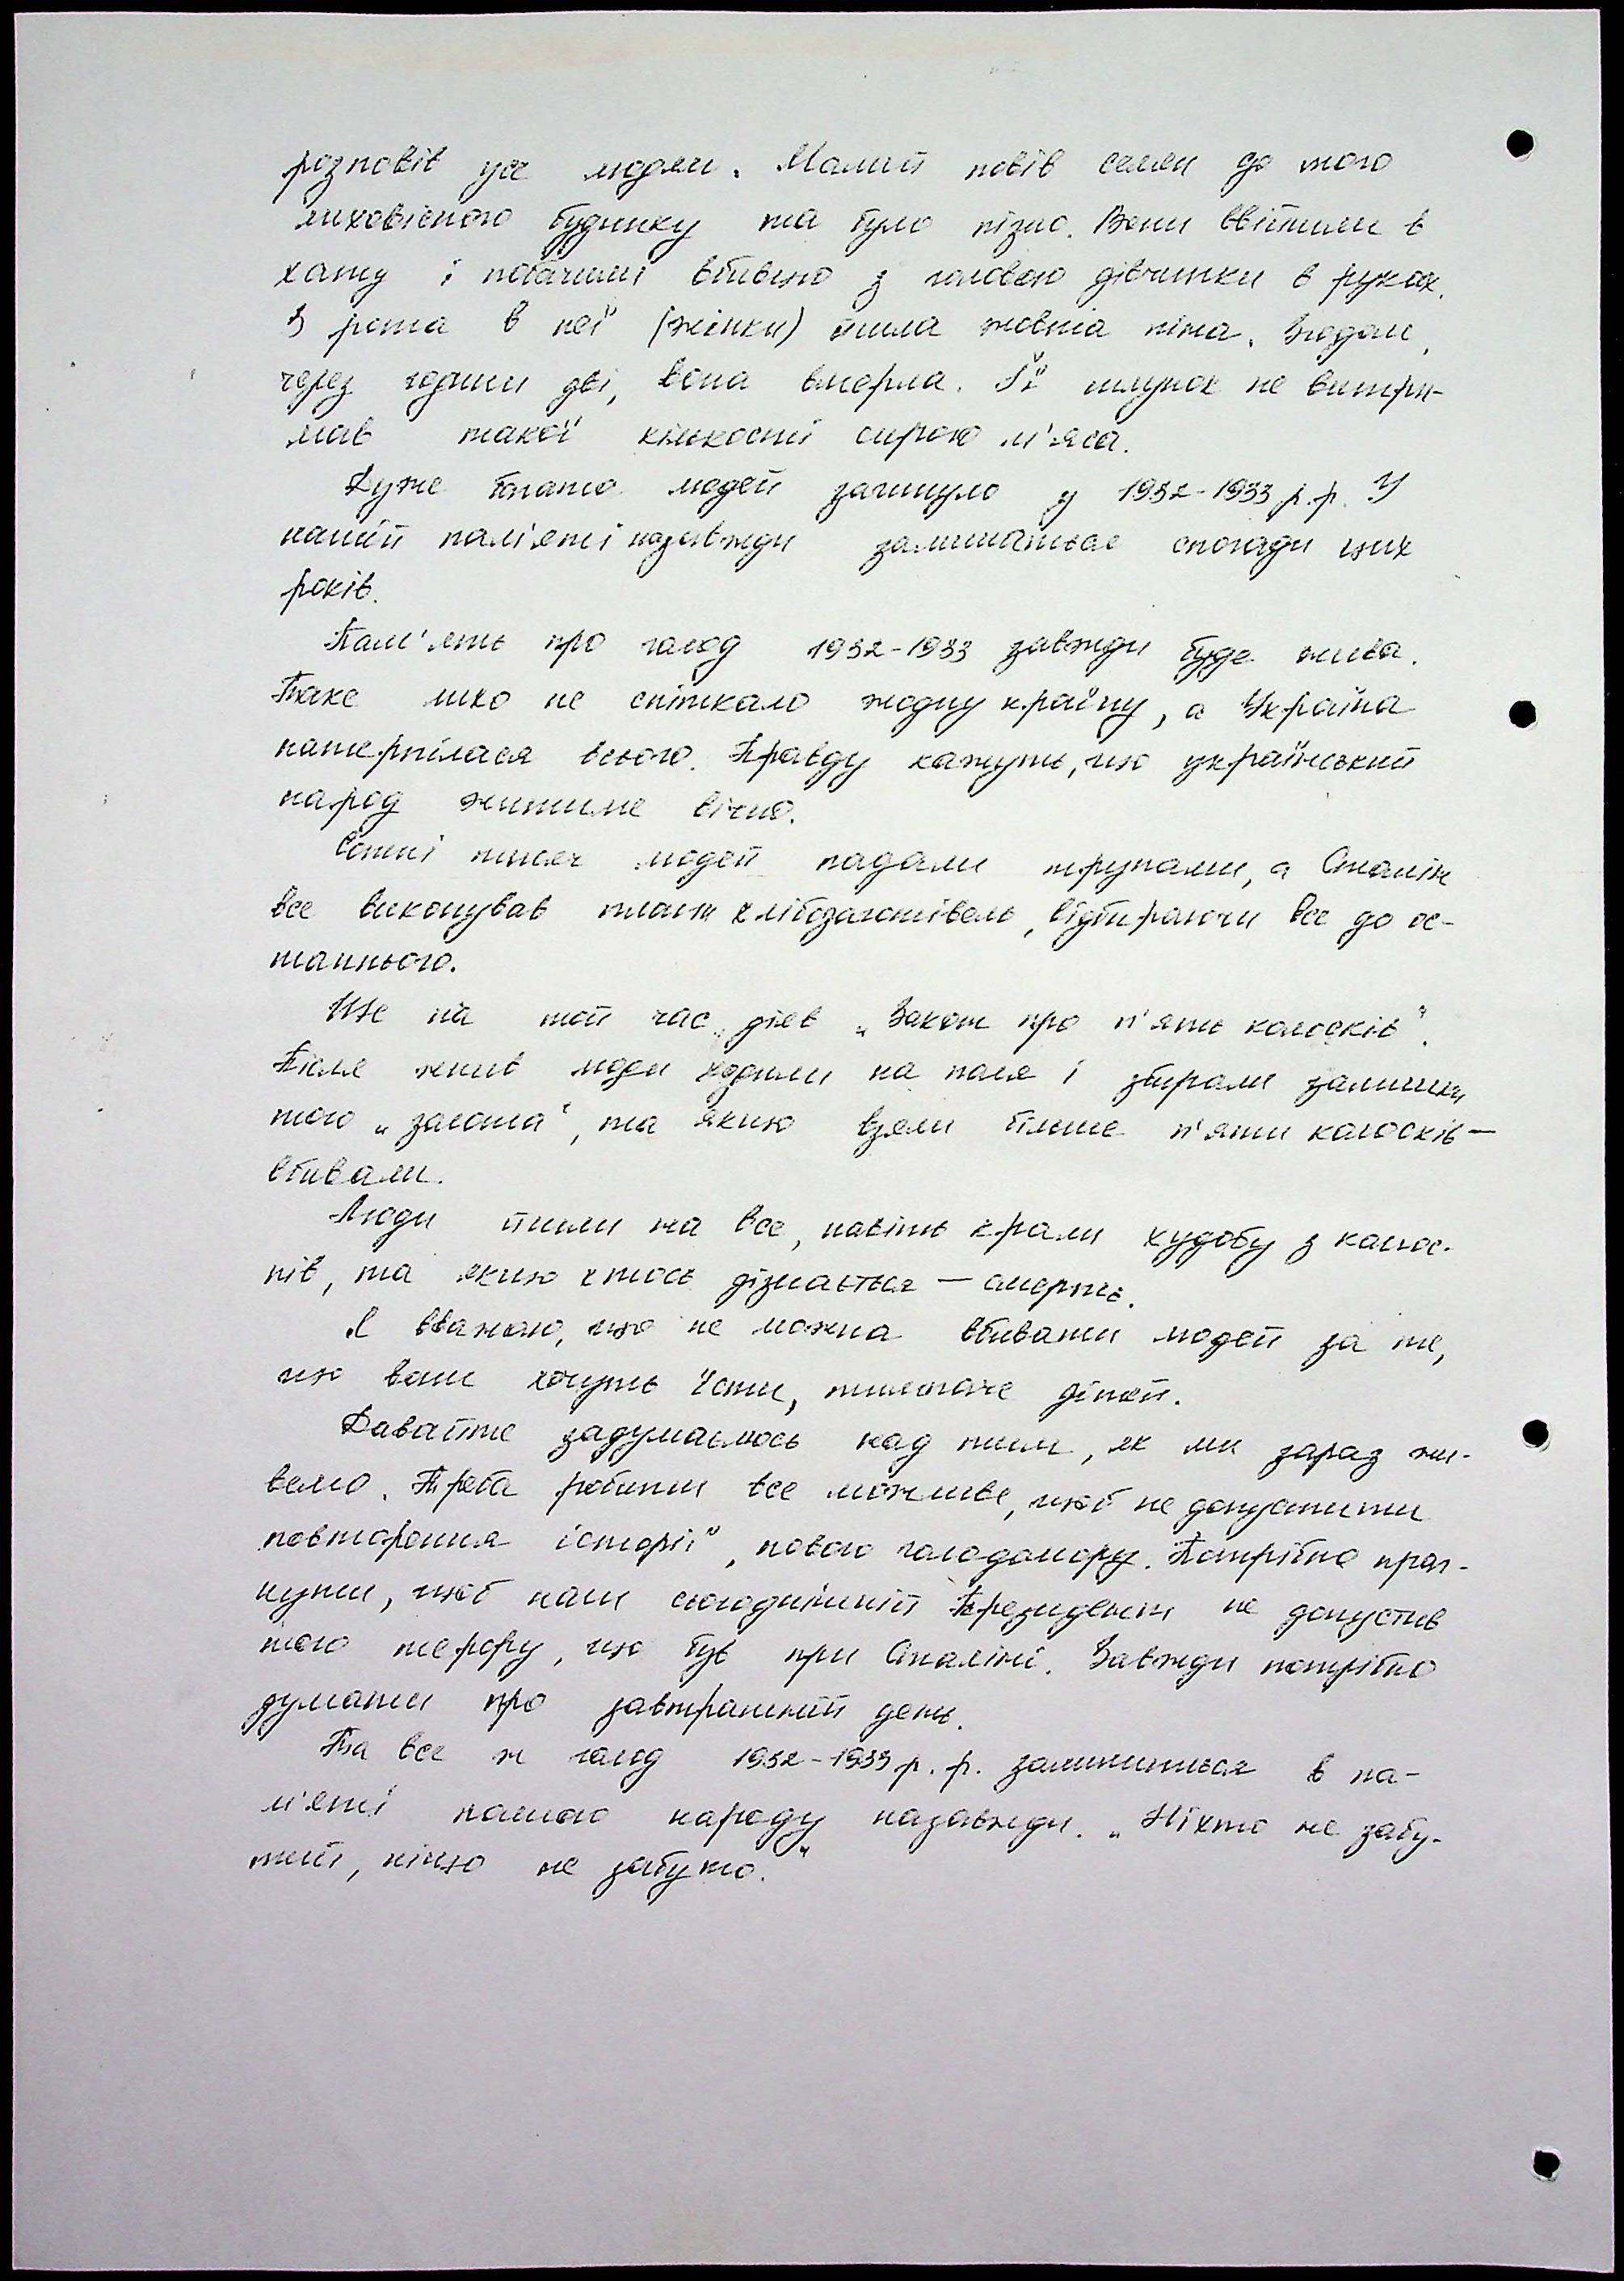 розповів усе людям. Малий повів селян до того
лиховісного будинку та було пізно. Вони ввійшли в
хату і побачили вбивцю з головою дівчинки в руках.
З рота в неї (жінки) йшла жовта піна. Згодом,
через години дві, вона вмерла. Її шлунок не витри-
мав такої кількості сирого м'яса.
Дуже багато людей загинуло у 1932-1933 р.р. У
нашій пам'яті назавжди залишаться спогади цих
років.
Пам'ять про голод 1932-1933 завжди буде жива.
Таке лихо не спіткало жодну країну, а Україна
натерпілася всього. Правду кажуть, що український
народ житиме вічно.
Сотні тисяч людей падали трупами, а Сталін
все виконував план хлібозаготівель, відбираючи все до ос-
таннього.
Ще на той час діяв „Закон про п'ять колосків".
Після жнив люди ходили на поля і збирали залишки
того „золота", та якщо взяли більше п'яти колосків —
вбивали.
Люди йшли на все, навіть крали худобу з колгос-
пів, та якщо хтось дізнається — смерть.
Я вважаю, що не можна вбивати людей за те,
що вони хочуть їсти, тим паче дітей.
Давайте задумаємось над тим, як ми зараз жи-
вемо. Треба робити все можливе, щоб не допустити
повторення історії, нового голодомору. Потрібно праг-
нути, щоб наш сьогоднішній Президент не допустив
того терору, що був при Сталіні. Завжди потрібно
думати про завтрашній день.
Та все ж голод 1932-1933 р.р. залишиться в па-
м'яті нашого народу назавжди. „Ніхто не забу-
тий, ніщо не забуто."